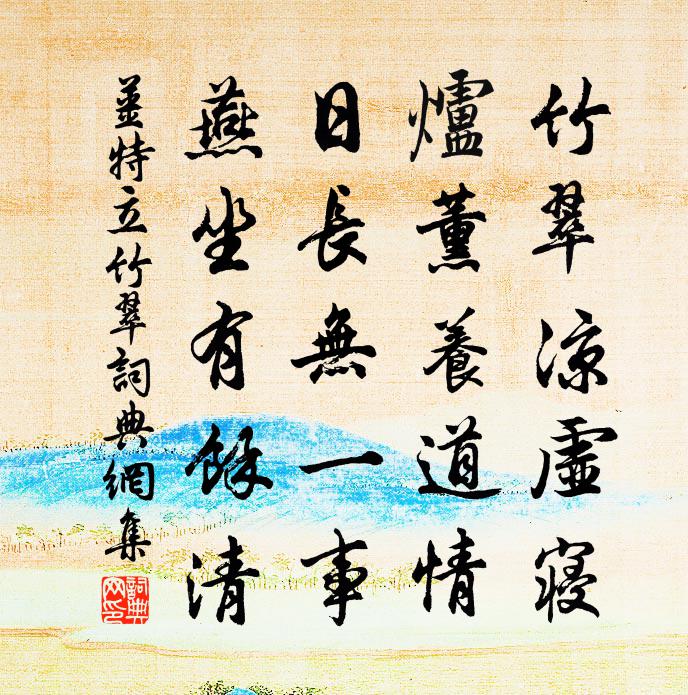 竹翠涼虛寢
爐薰養道情
日長無一事
燕坐有餘清
姜特立竹翠詞典網集
詞典网印